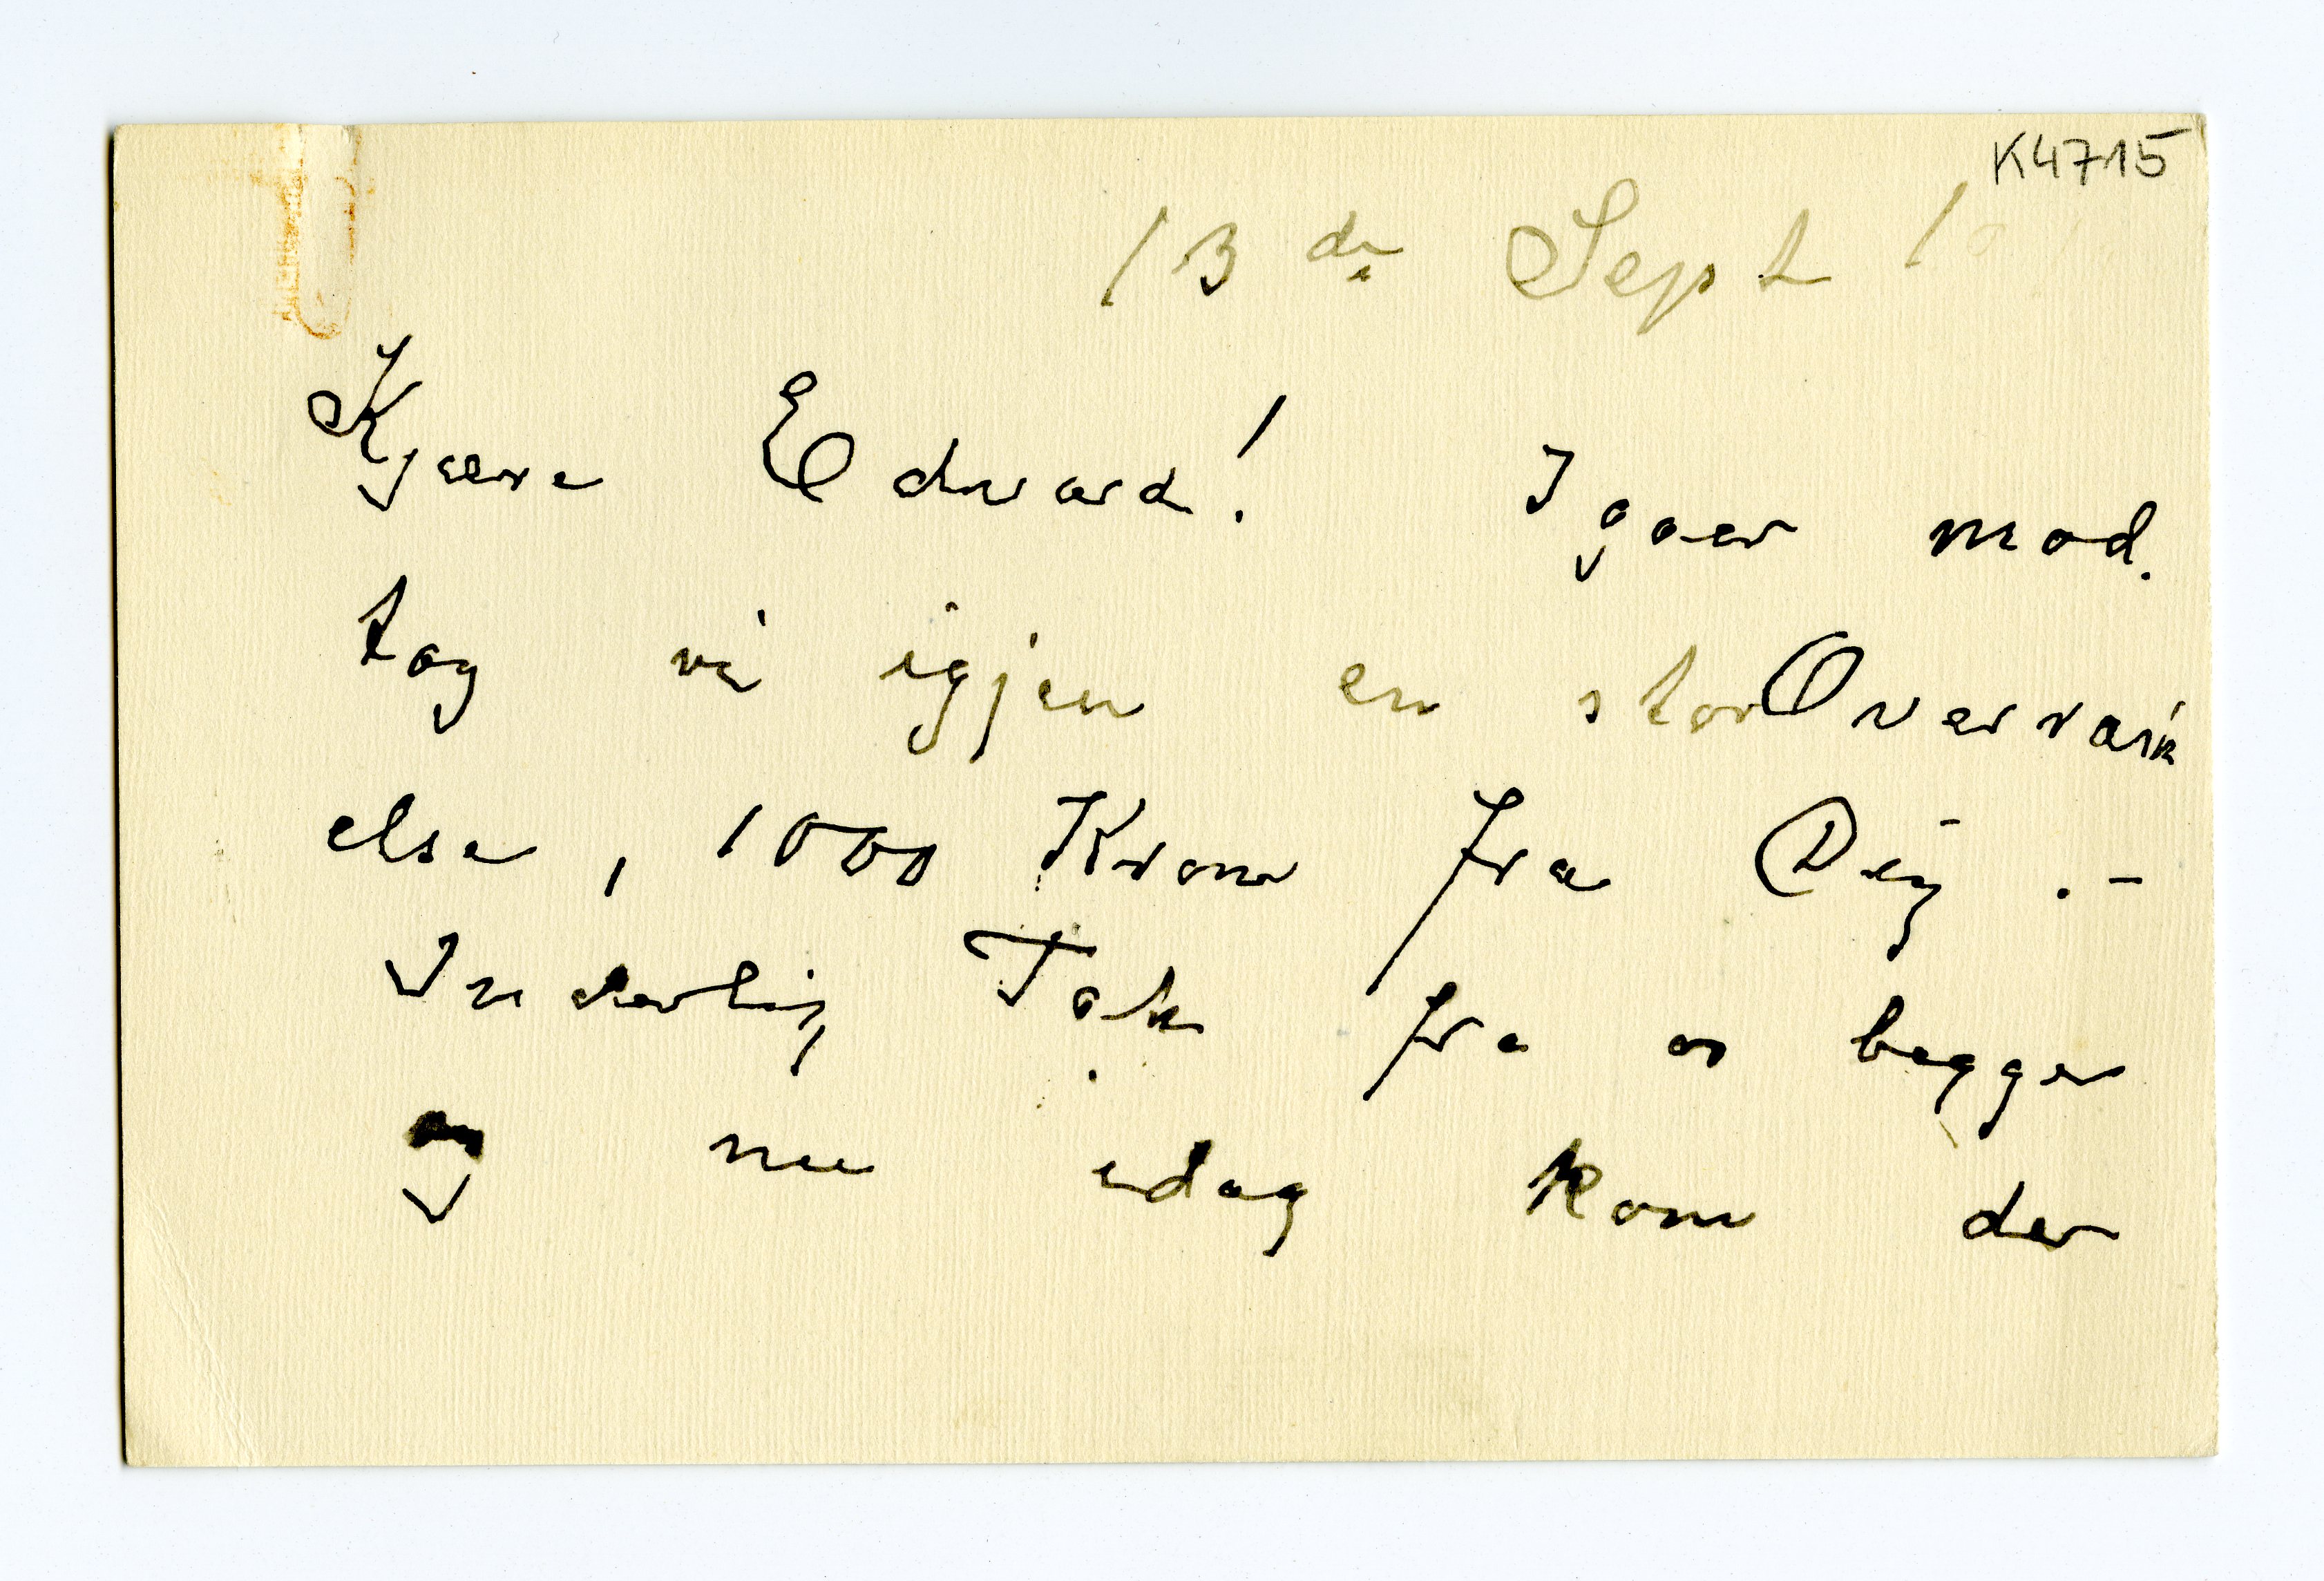 K4715
13de Sept 1
Kjære Edvard! Igaar mod.
tog vi igjen en stor Overrask
else, 1000 Kroner fra Dig.–
Inderlig Tak fra os begge
og nu idag kom der